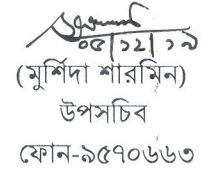 ০৫/১২/১৯
(মুর্শিদা শারমিন)
উপসচিব
ফোন-৯৫৭০৬৬৩